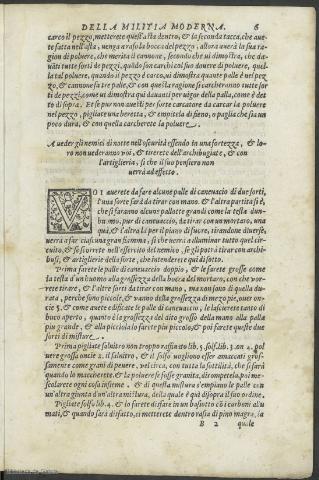 DELLA MILITIA MODERNA. 6
carco il pezzo, metterete quest'asta dentro, & la seconda tacca, che aue-
te fatta nell'asta, venga a raso la bocca del pezzo, allora auerà la sua ra-
gion di poluere, che merita il cannone, secondo che ui dimostra, che da-
uāti tutte sorti de pezzi, quādo son carchi cosi suo douere di poluere, quel
la tal poluere, quando il pezzo è carco, ui dimostra quante palle è nel pez-
zo, & cannone sa tre palle, & con questa ragione si carcheranno tutte sor
ti de pezzi, come ui dimostra qui dauanti per uigor della palla, come è det
to di sopra. Et se pur non auetti per sorte carcatore da carcar la poluere
nel pezzo, pigliate una beretta, & empitela di fieno, o paglia che sia un
poco dura, & con quella carcherete la poluere.
A ueder gli nemici di notte nell'oscurità essendo in una fortezza, & lo-
ro non uedranno voi, & tirerete dell'archibugiate, & con
l'artiglieria, sì che il suo pensiero non
uerrà ad effetto.
VOI auerete da fare alcune palle di caneuaccio di due sorti,
l'una sorte sarà da tirar con mano, & l'altra partita si è,
che si faranno alcune pallotte grandi come la testa d'un hu-
mo, pur di caneuaccio, da tirar con un mortaro, una
quà, & l'altra là per il piano di fuore, tirandone diuerse,
uerrà a far ciascuna gran fiamma, si che uerrà a illuminar tutto quel cir-
cuito, & se scorrete nell'essercito del nemico, se gli potrà tirar con archi-
busi, & artiglierie della forte, che intenderete quì di sotto.
Prima farete le palle di caneuaccio doppio, & le farete grosse come
la testa d'un huomo a alla grossezza della bocca del mortaro, con che vor-
rete tirare, & l'altre sorti da tirar con mano, ma non sono di quella du-
rata, perche sono picciole, & uanno della grossezza di mezo piè, ouer on-
cie 5. & come auete edificate le palle di caneuaccio, le lascierete tanto di
buco aperto, quanto è la grossezza del dito grosso della mano alla palla
piu grande, & alla picciola lo farete piu picciolo, & poi farete queste due
sorti di misture.
Prima pigliate salnitro non troppo raffinato lib. 5. solf. lib. 3. on. 2. pol
uere grossa oncie 2. il salnitro, & il solfo vogliono esser amaccati gros-
samente come grani di peuere, vel circa, con tutta la sottilità, che si sarà
quando lo maccherete. & le poluere se fosse granita, dirompetela, poi me-
scolarete ogni cosa insieme. & di questa mistura s'empiano le palle con
un'altra giunta d'un'altra mistura, della quale è quì dipoi il suo ordine.
Pigliate solfo lib. 4. & lo farete disfare in un bassotto cō i carboni alu
mati, & quando sarà disfatto, ci metterete dentro rasa di pino magra, la
B 2 quale